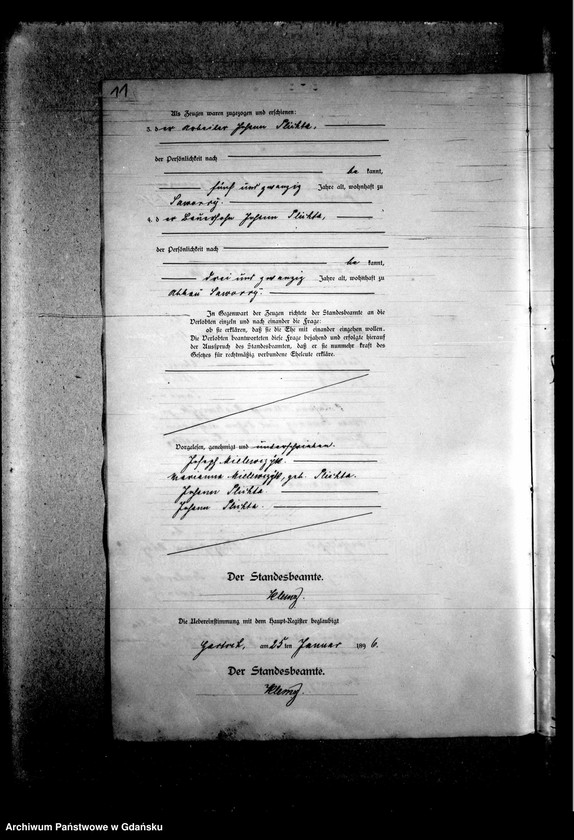 11
Als Zeugen waren zugezogen und erschienen:
3. der Arbeiter Johann Plichta,
der Persönlichkeit nach
be kannt,
fünf und zwanzig Jahre alt, wohnhaft zu
Saworry.
4. der Bauersohn Johann Plichta,
der Persönlichkeit nach
be kannt,
drei und zwanzig Jahre alt, wohnhaft zu
Abbau Saworry.
In Gegenwart der Zeugen richtete der Standesbeamte an die
Verlobten einzeln und nach einander die Frage:
ob sie erklären, daß sie die Ehe mit einander eingehen wollen.
Die Verlobten beantworteten diese Frage bejahend und erfolgte hierauf
der Ausspruch des Standesbeamten, daß er sie nunmehr kraft des
Gesetzes für rechtmäßig verbundene Eheleute erkläre.
Vorgelesen, genehmigt und unterschrieben.
Joseph Mielewczyk.
Marianna Mielewczyk, geb. Plichta.
Johann Plichta
Johann Plichta.
Der Standesbeamte.
Die Uebereinstimmung mit dem Haupt-Register beglaubigt
am 25 ten Januar 1896.
Der Standesbeamte.
Archiwum Państwowe w Gdańsku